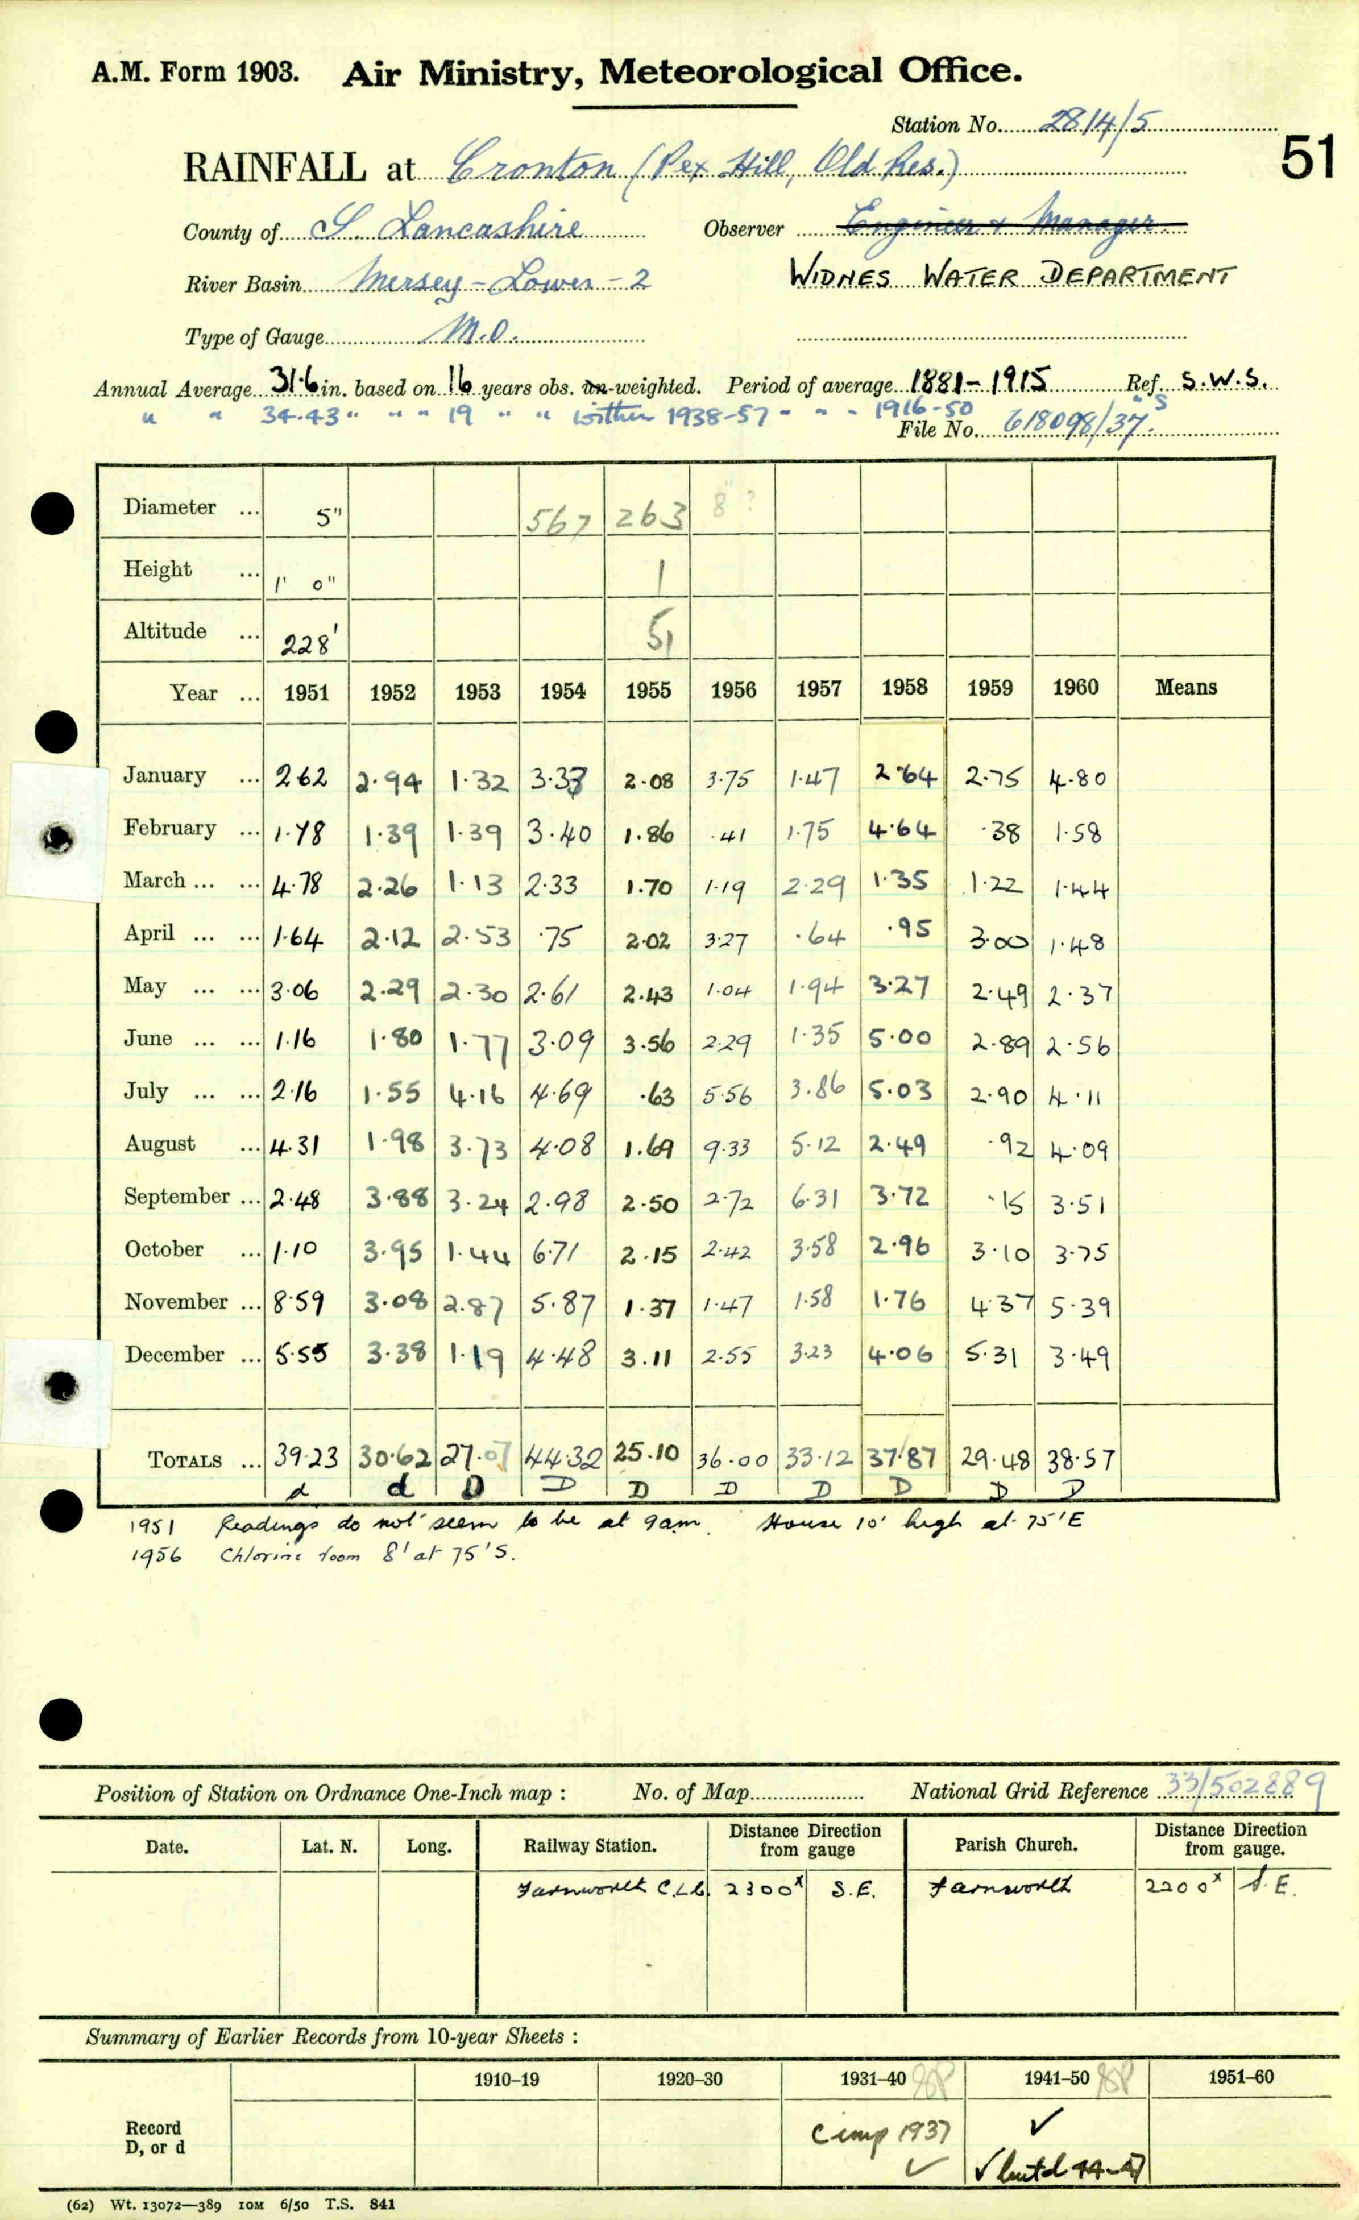 A.M. Form 1903. Air Ministry, Meteorological Office.
Station No. 2814/5
51
RAINFALL at Cronton (Pex Hill, Old Res.)
County of S. Lancashire Observer Engineer & Manager
River Basin Mersey - Lower - 2 WIDNES WATER DEPARTMENT
Type of Gauge M.O.
Annual Average 31.6 in. based on 16 years obs. un-weighted. Period of average 1881-1915 Ref. S.W.S.
" " 34.43 " " " 19 " " within 1938-57 " " " 1916-50 " S
File No. 618098/37.
Diameter ... 5" 567 263 8" ?
Height ... 1' 0" 1
Altitude ... 228' 51
Year ... 1951 1952 1953 1954 1955 1956 1957 1958 1959 1960 Means
January ... 2.62 2.94 1.32 3.33 2.08 3.75 1.47 2.64 2.75 4.80
February ... 1.78 1.39 1.39 3.40 1.86 .41 1.75 4.64 .38 1.58
March ... ... 4.78 2.26 1.13 2.33 1.70 1.19 2.29 1.35 1.22 1.44
April ... ... 1.64 2.12 2.53 .75 2.02 3.27 .64 .95 3.00 1.48
May ... ... 3.06 2.29 2.30 2.61 2.43 1.04 1.94 3.27 2.49 2.37
June ... ... 1.16 1.80 1.77 3.09 3.56 2.29 1.35 5.00 2.89 2.56
July ... ... 2.16 1.55 4.16 4.69 .63 5.56 3.86 5.03 2.90 4.11
August ... 4.31 1.98 3.73 4.08 1.69 9.33 5.12 2.49 .92 4.09
September ... 2.48 3.88 3.24 2.98 2.50 2.72 6.31 3.72 .15 3.51
October ... 1.10 3.95 1.44 6.71 2.15 2.42 3.58 2.96 3.10 3.75
November ... 8.59 3.08 2.87 5.87 1.37 1.47 1.58 1.76 4.37 5.39
December ... 5.55 3.38 1.19 4.48 3.11 2.55 3.23 4.06 5.31 3.49
TOTALS ... 39.23 30.62 27.07 44.32 25.10 36.00 33.12 37.87 29.48 38.57
d d D D D D D D D D
1951 Readings do not seem to be at 9am. House 10' high at 75' E
1956 Chlorine room 8' at 75' S.
Position of Station on Ordnance One-Inch map : No. of Map National Grid Reference 33/502889
Date. Lat. N. Long. Railway Station. Distance from gauge Direction Parish Church. Distance from gauge. Direction
Farnworth C.L.C. 2300x S.E. Farnworth 2200x S.E.
Summary of Earlier Records from 10-year Sheets :
1910-19 1920-30 1931-40 1941-50 1951-60
Record D, or d Comp 1937 ✓ ✓
✓ but d 44-47
(62) Wt. 13072—389 10M 6/50 T.S. 841